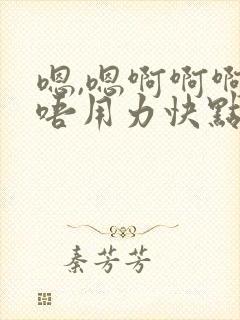 嗯,嗯啊啊啊
唔用力快點
秦芳芳